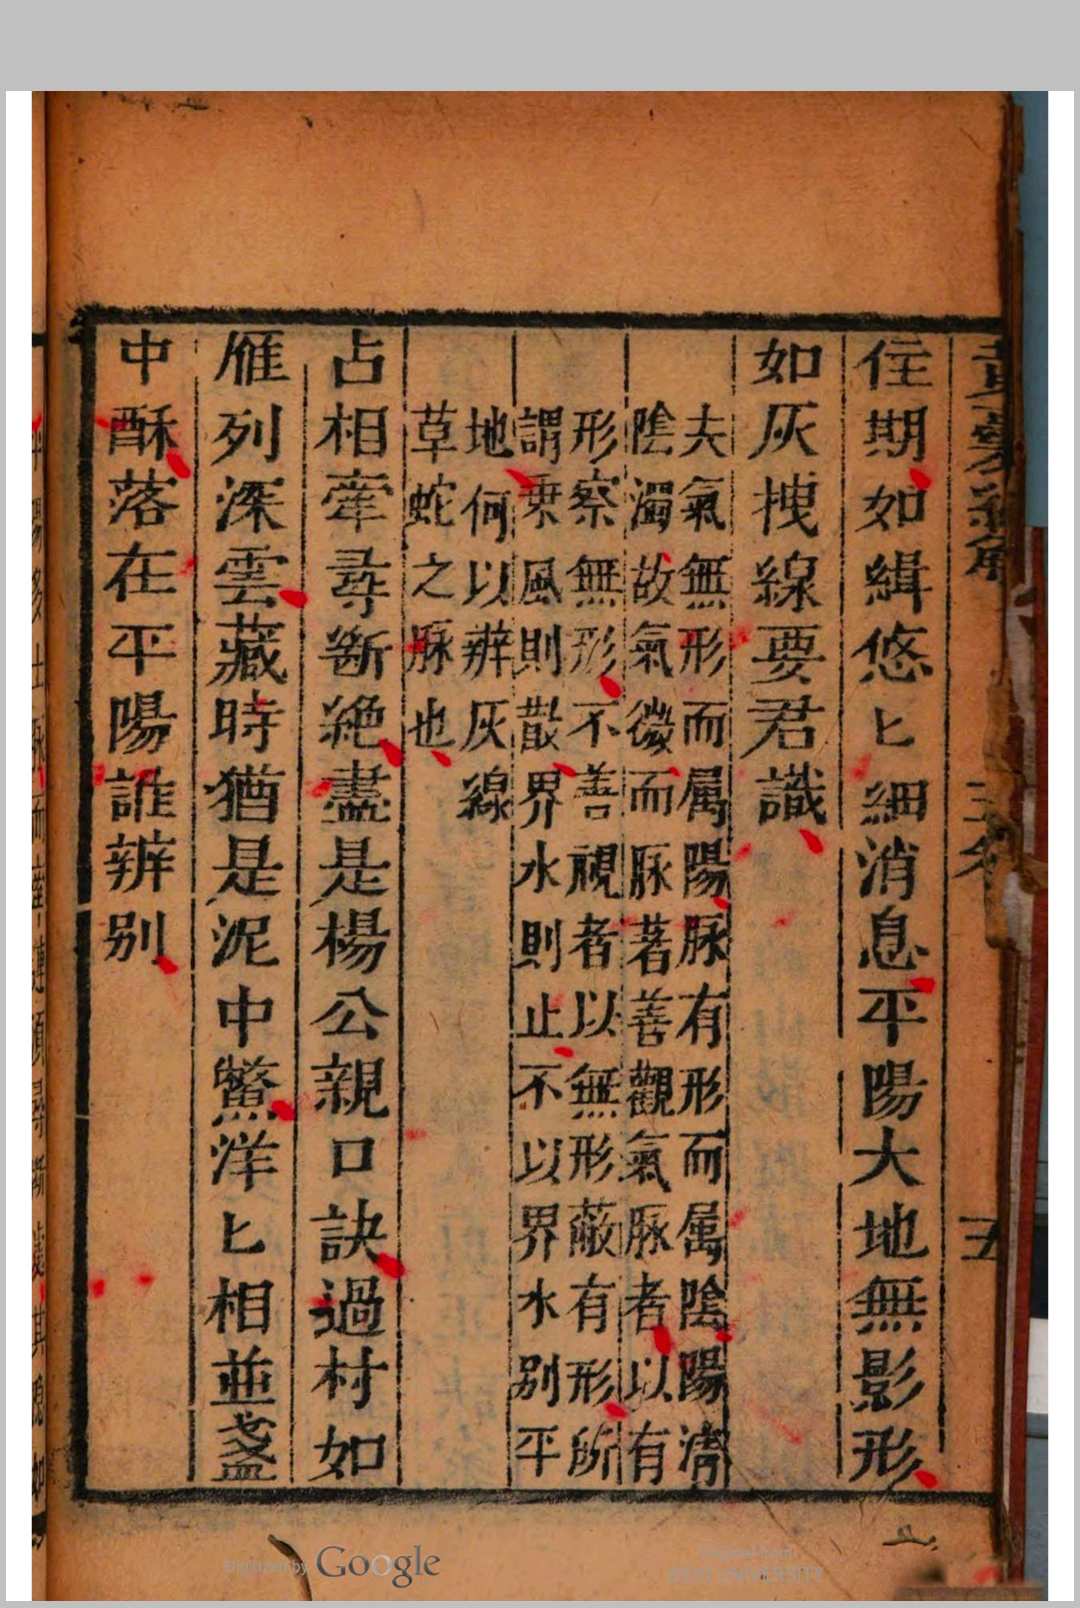 佳期如緝悠匕細消息平陽大地無影形
如灰拽線要君識
夫氣無形而属陽脉有形而属陰陽清
陰濁故氣微而脉著善觀氣脉者以有
形察無形不善視者以無形蔽有形所
謂乗風則散界水則止不以界水别平
地何以辨灰線
草蛇之脉也
占相牽尋斷絶盡是楊公親口訣過村如
雁列深雲藏時猶是泥中鱉洋匕相並盞
中酥落在平陽誰辨别
Google